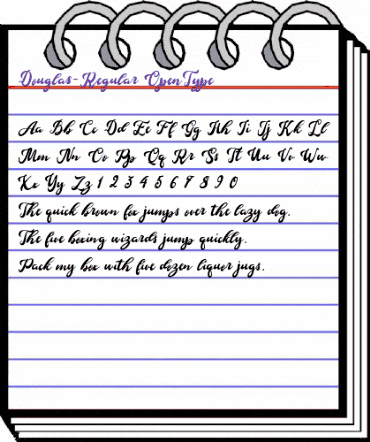 Douglas-Regular OpenType
Aa Bb Cc Dd Ee Ff Gg Hh Ii Jj Kk Ll
Mm Nn Oo Pp Qq Rr Ss Tt Uu Vv Ww
Xx Yy Zz 1 2 3 4 5 6 7 8 9 0
The quick brown fox jumps over the lazy dog.
The five boxing wizards jump quickly.
Pack my box with five dozen liquor jugs.